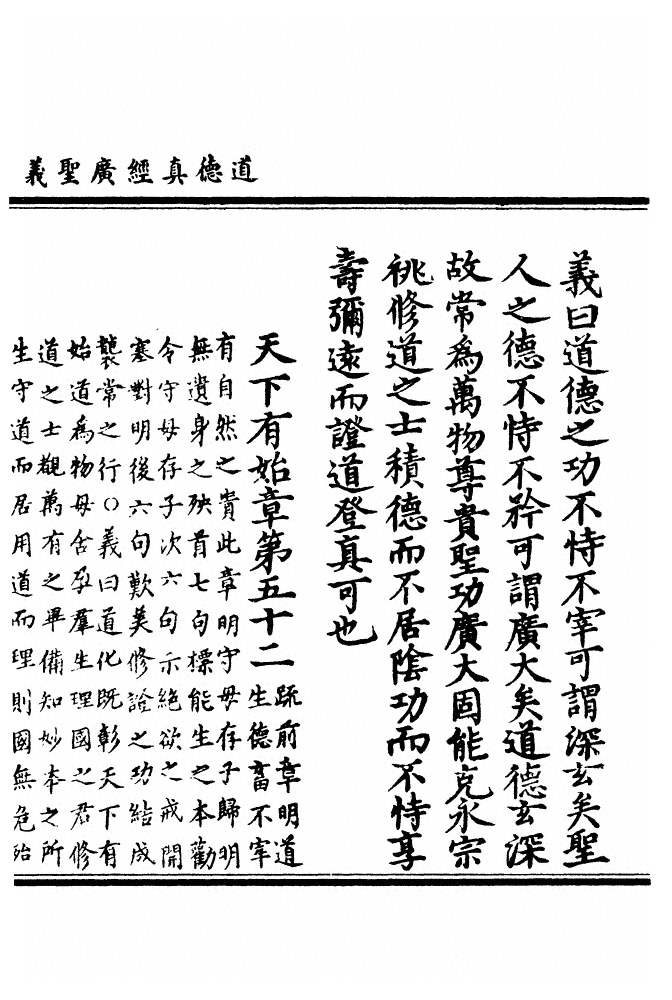 道德真經廣聖義
義曰道德之功不恃不宰可謂深玄矣聖
人之德不恃不矜可謂廣大矣道德玄深
故常為萬物尊貴聖功廣大固能克永宗
祧修道之士積德而不居陰功而不恃享
壽彌遠而證道登真可也
天下有始章第五十二
疏前章明道
生德畜不宰
有自然之貴此章明守母存子歸明
無遺身之殃首七句標能生之本勸
令守母存子次六句示絕欲之戒開
塞對明後六句歎美修證之功結成
襲常之行○義曰道化既彰天下有
始道為物母含孕羣生理國之君修
道之士觀萬有之畢備知妙本之所
生守道而居用道而理則國無危殆